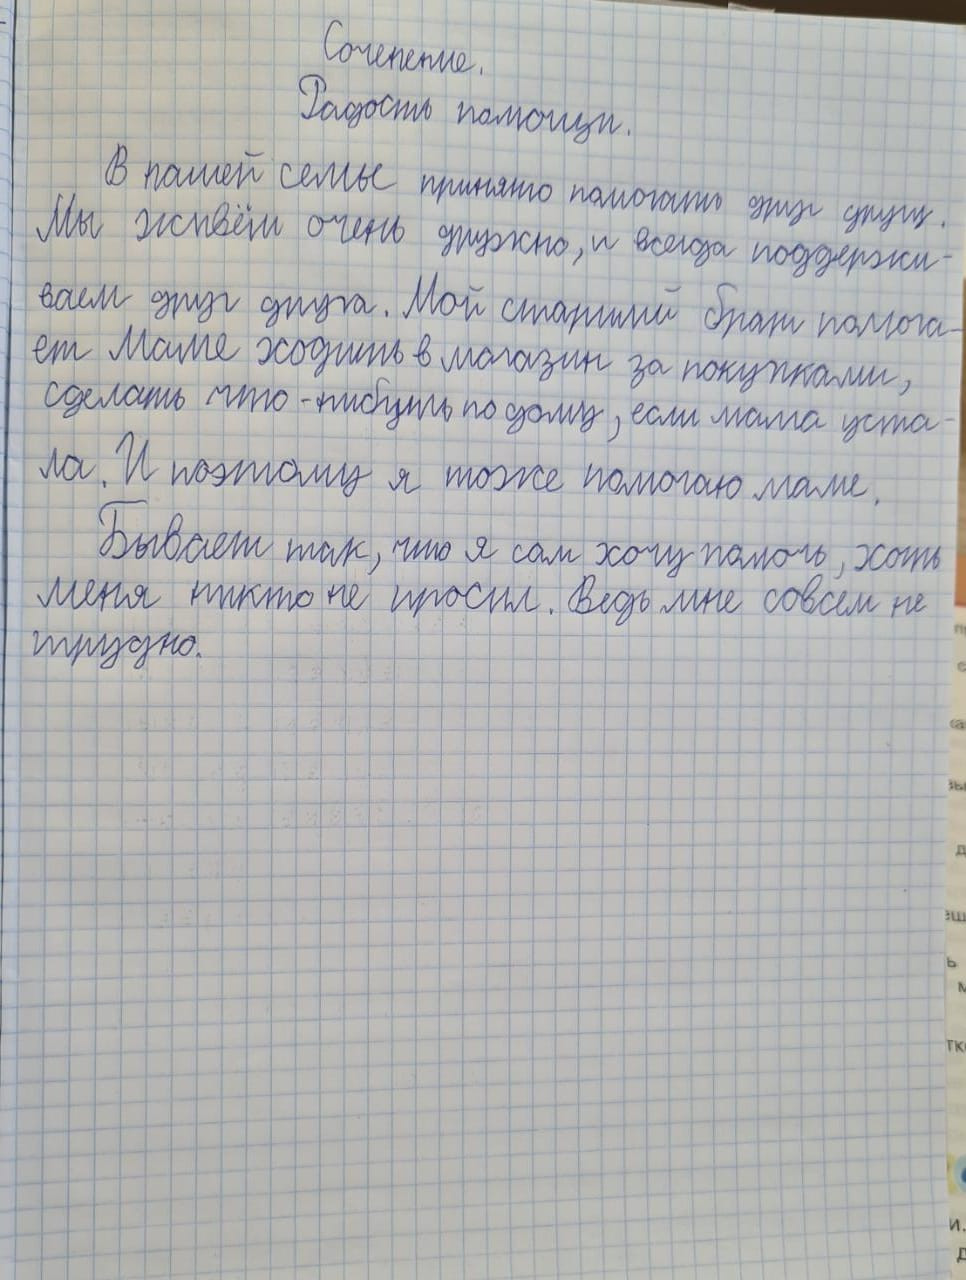 Сочинение.
Радость помощи.
В нашей семье принято помогать друг другу.
Мы живём очень дружно, и всегда поддержи-
ваем друг друга. Мой старший брат помога-
ет Маме ходить в магазин за покупками,
сделать что-нибудь по дому, если мама уста-
ла. И поэтому я тоже помогаю маме.
Бывает так, что я сам хочу помочь, хоть
меня никто не просил. Ведь мне совсем не
трудно.